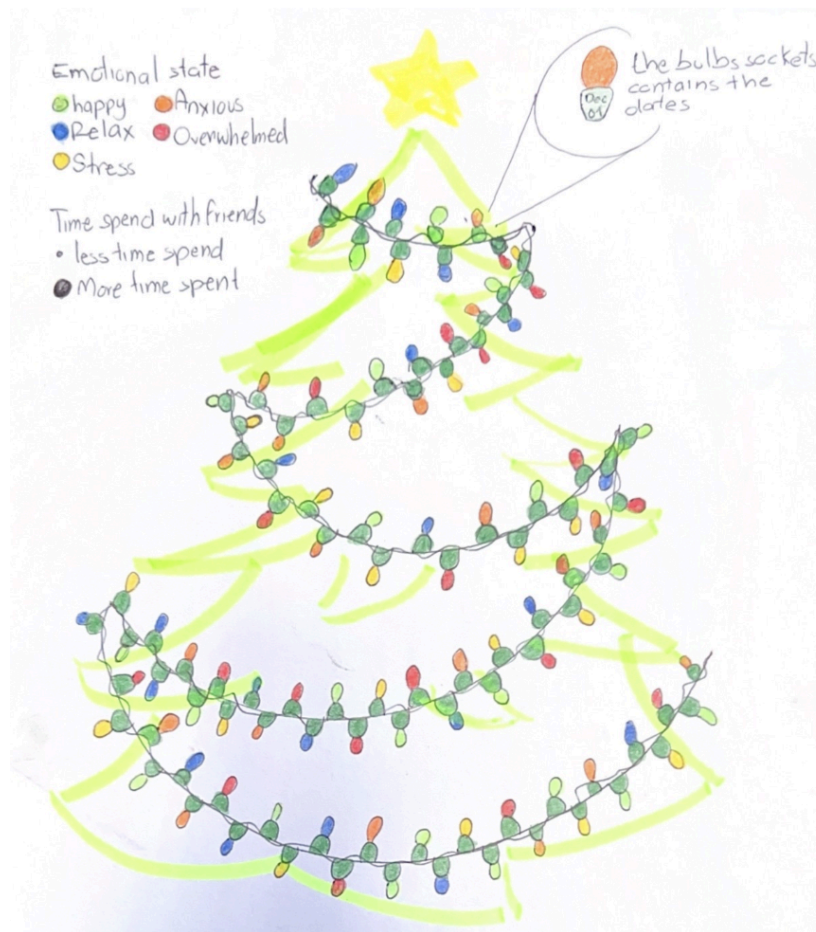 Emotional state
happy Anxious
Relax Overwhelmed
Stress
Time spend with friends
less time spend
More time spent
the bulbs sockets
contains the
dates
Dec
01